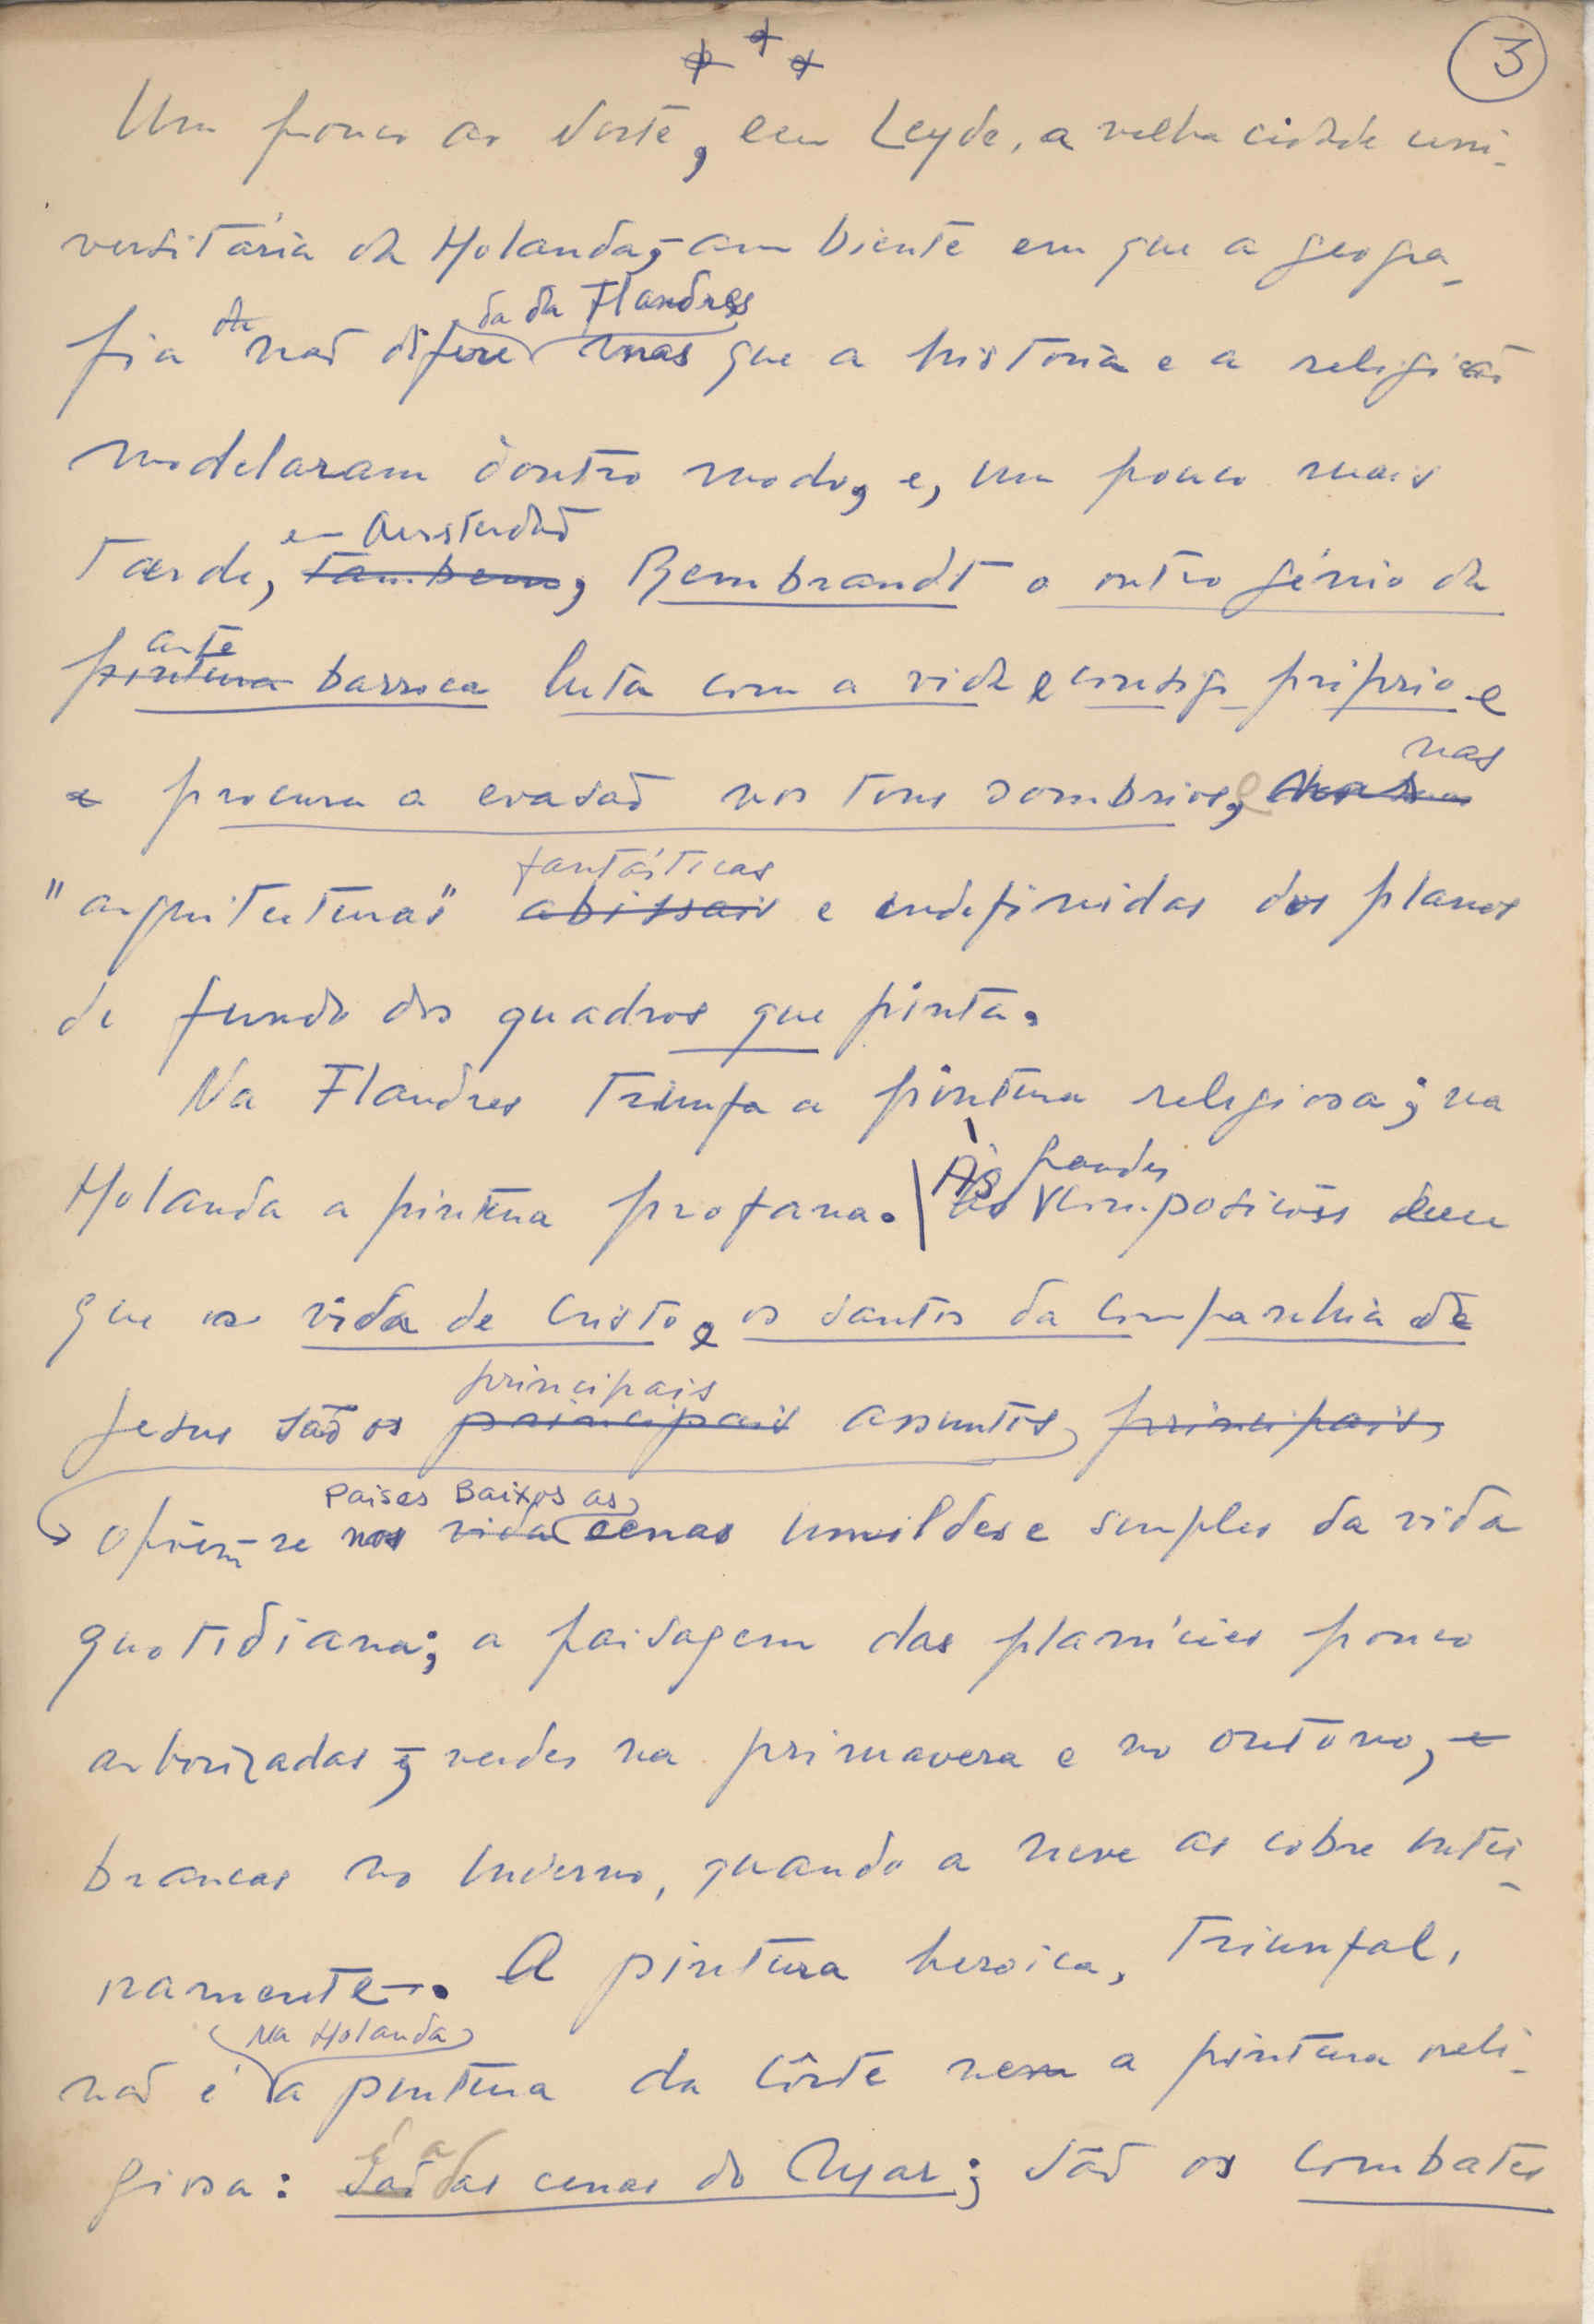 3
Um pouco ao Norte, em Leyde, a velha cidade uni-
versitária da Holanda, ambiente em que a geogra-
da da Flandres
fia não difere mas que a história e a religião
modelaram doutro modo, e, um pouco mais
em Amsterdão
tarde, tambem, Rembrandt o outro génio da
arte
pintura barroca luta com a vida e consigo próprio e
nas
e procura a evasão nos tons sombrios, e
fantásticas
"arquitecturas" abissais e indefinidas dos planos
de fundo dos quadros que pinta.
Na Flandres triunfa a pintura religiosa; na
Às grandes
Holanda a pintura profana. composições em
que a vida de Cristo e os santos da Companhia de
principais
Jesus são os principais assuntos, principais,
Paises Baixos as
opõem-se nos vida cenas humildes e simples da vida
quotidiana; a paisagem das planícies pouco
arborizadas, verdes na primavera e no outôno, e
brancas no Inverno, quando a neve as cobre intei-
ramente. A pintura heroica, triunfal,
na Holanda
não é a pintura da Côrte nem a pintura reli-
é a
giosa: São as cenas do lar; são os combates